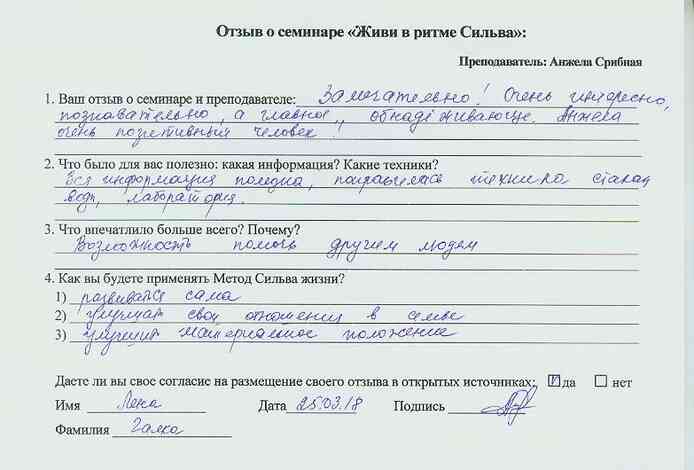 Отзыв о семинаре «Живи в ритме Сильва»:
Преподаватель: Анжела Срибная
1. Ваш отзыв о семинаре и преподавателе: Замечательно! Очень интересно,
познавательно, а главное, обнадёживающе. Анжела
очень позетивный человек!
2. Что было для вас полезно: какая информация? Какие техники?
Вся информация полезна, понравилась техника стакан
воды, лаборатория.
3. Что впечатлило больше всего? Почему?
Возможность помочь другим людям
4. Как вы будете применять Метод Сильва жизни?
1) развиватся сама
2) улучшать свои отношения в семье
3) улучшить материальное положение
Даете ли вы свое согласие на размещение своего отзыва в открытых источниках: да нет
Имя Лена Дата 25.03.18 Подпись
Фамилия Галка